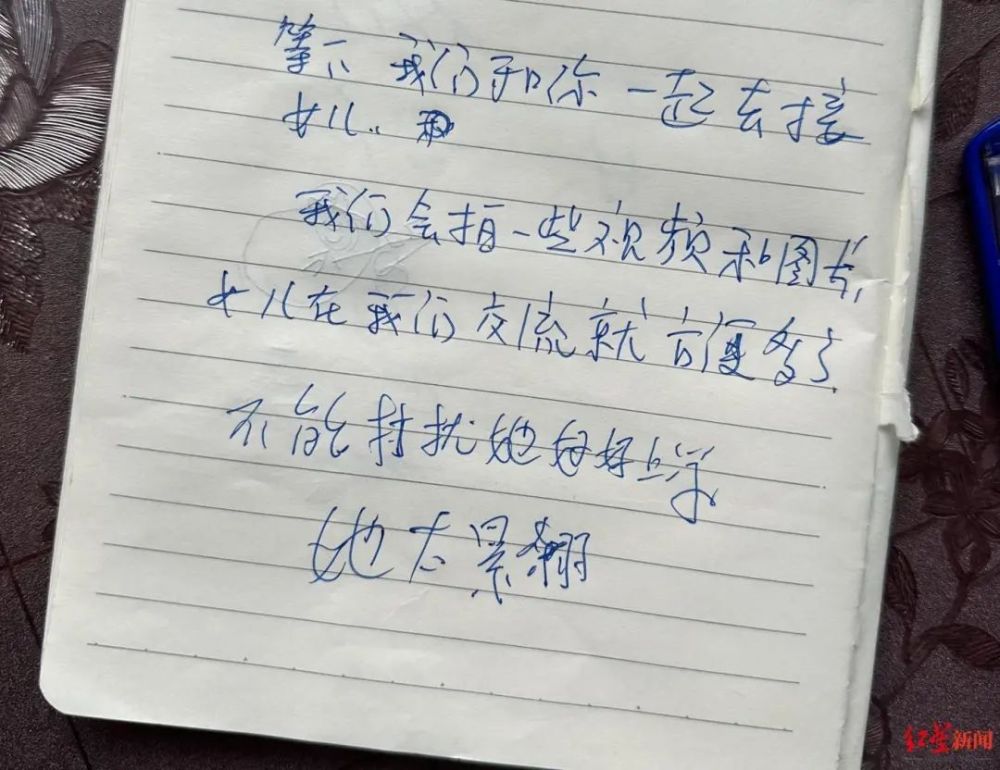 等下我们和你一起去接
女儿.
我们会拍一些视频和图片,
女儿在我们交流就方便多了.
不能打扰她好好上学
她太累
红星新闻